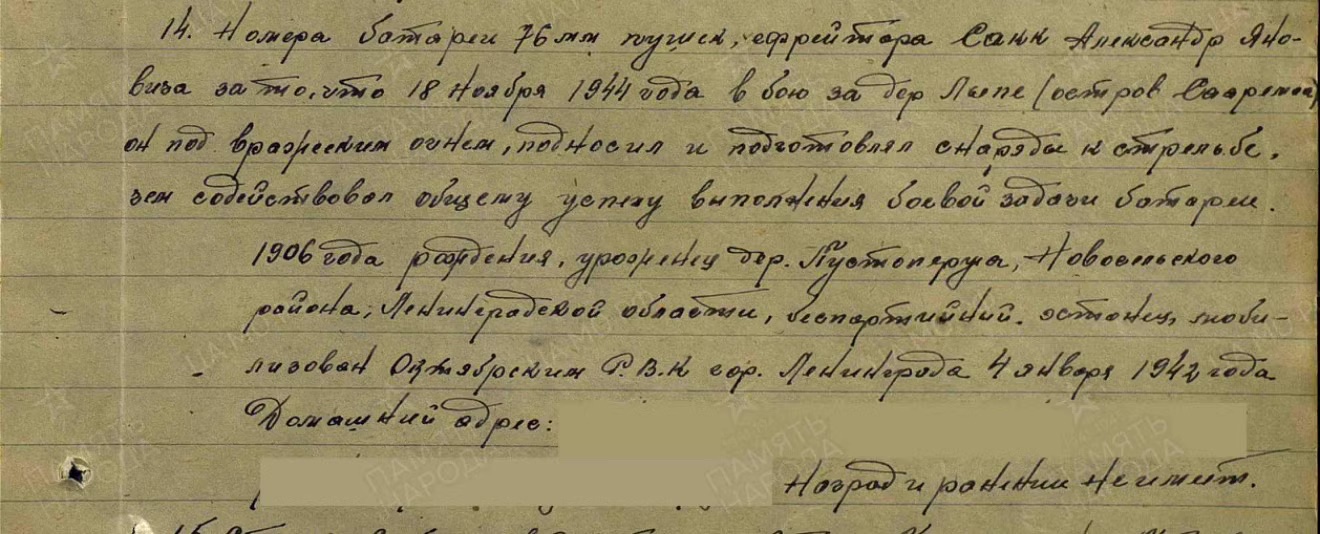 14. Номера батареи 76 мм пушек, ефрейтора Санк Александр Яно-
виза за то, что 18 ноября 1944 года в бою за дер Лыпе (остров Сааремаа)
он под вражеским огнем, подносил и подготовлял снаряды к стрельбе,
чем содействовал общему успеху выполнения боевой задачи батареи.
1906 года рождения, уроженец дер. Пустопержа, Новосельского
района, Ленинградской области, беспартийный. эстонец, моби-
лизован Октябрским Р.В.К гор. Ленинграда 4 января 1942 года
Домашний адрес:
Наград и ранении не имеет.